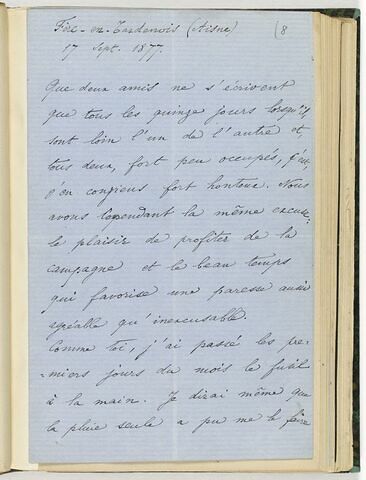 Fère-en-Tardenois (Aisne) (8
17 Sept. 1877.
Que deux amis ne s'écrivent
que tous les quinze jours lorsqu'ils
sont loin l'un de l'autre et,
tous deux, fort peu occupés, j'en,
j'en conviens fort honteux. Nous
avons cependant la même excuse:
le plaisir de profiter de la
campagne et le beau temps
qui favorise une paresse aussi
agréable qu'inexcusable.
Comme toi, j'ai passé les pre-
-miers jours du mois le fusil
à la main. Je dirai même que
la pluie seule a pu me le faire